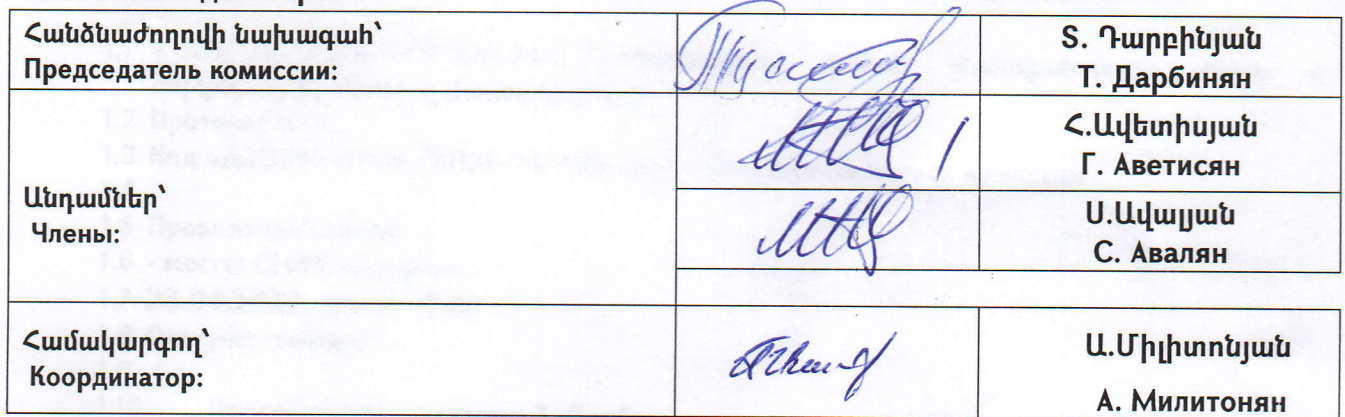 Հանձնաժողովի նախագահ՝
Председатель комиссии:
Տ. Դարբինյան
Т. Дарбинян
Հ.Ավետիսյան
Г. Аветисян
Անդամներ՝
Члены:
Ս.Ավալյան
С. Авалян
Համակարգող՝
Координатор:
Ա.Միլիտոնյան
А. Милитонян